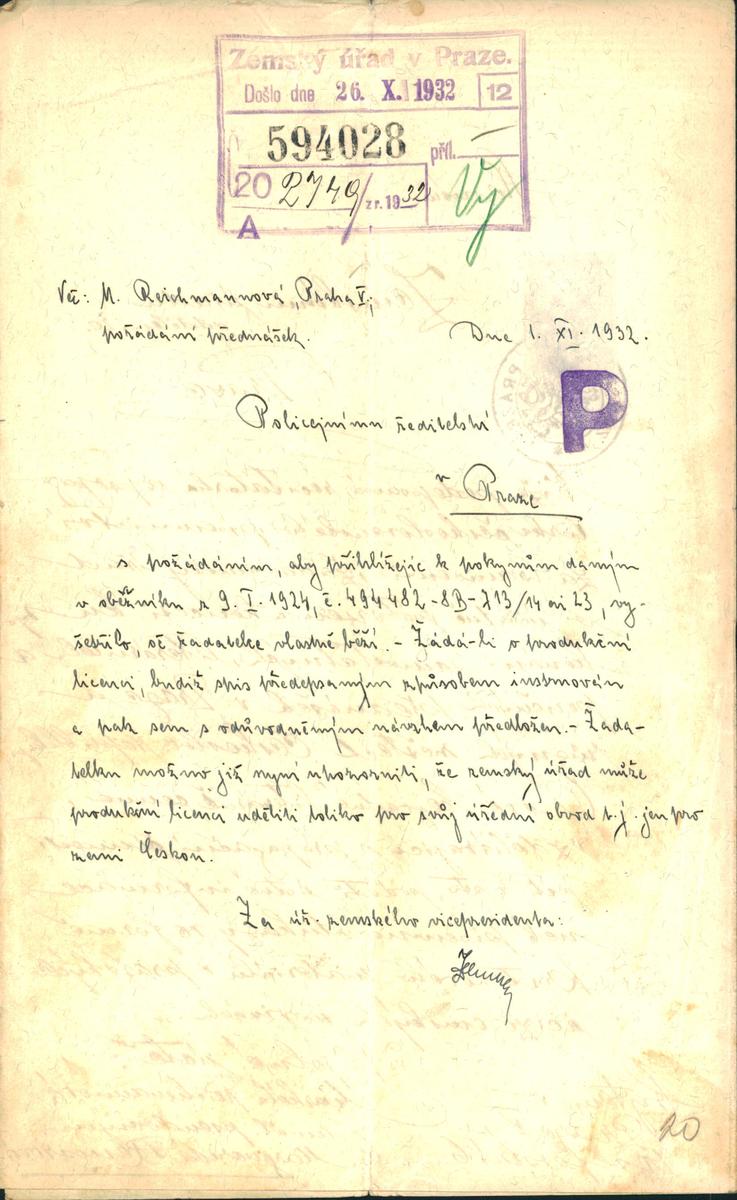 Zemský úřad v Praze.
Došlo dne 26. X. 1932 12
594028 příl. —
20 2749/z r. 1932
A
Věc: M. Reichmannová, Praha V.,
pořádání přednášek.
Dne 1. XI. 1932.
P
Policejnímu ředitelství
v Praze
s požádáním, aby přihlížejíc k pokynům daným
v oběžníku z 9. I. 1924, č. 494482-8B-713/14 ai 23, vy-
šetřilo, oč žadatelce vlastně běží. - Žádá-li o produkční
licenci, budiž spis předepsaným způsobem instruován
a pak sem s odůvodněným návrhem předložen. - Žada-
telku možno již nyní upozorniti, že zemský úřad může
produkční licenci uděliti toliko pro svůj úřední obvod t. j. jen pro
zemi Českou.
Za úř. zemského vicepresidenta:
20